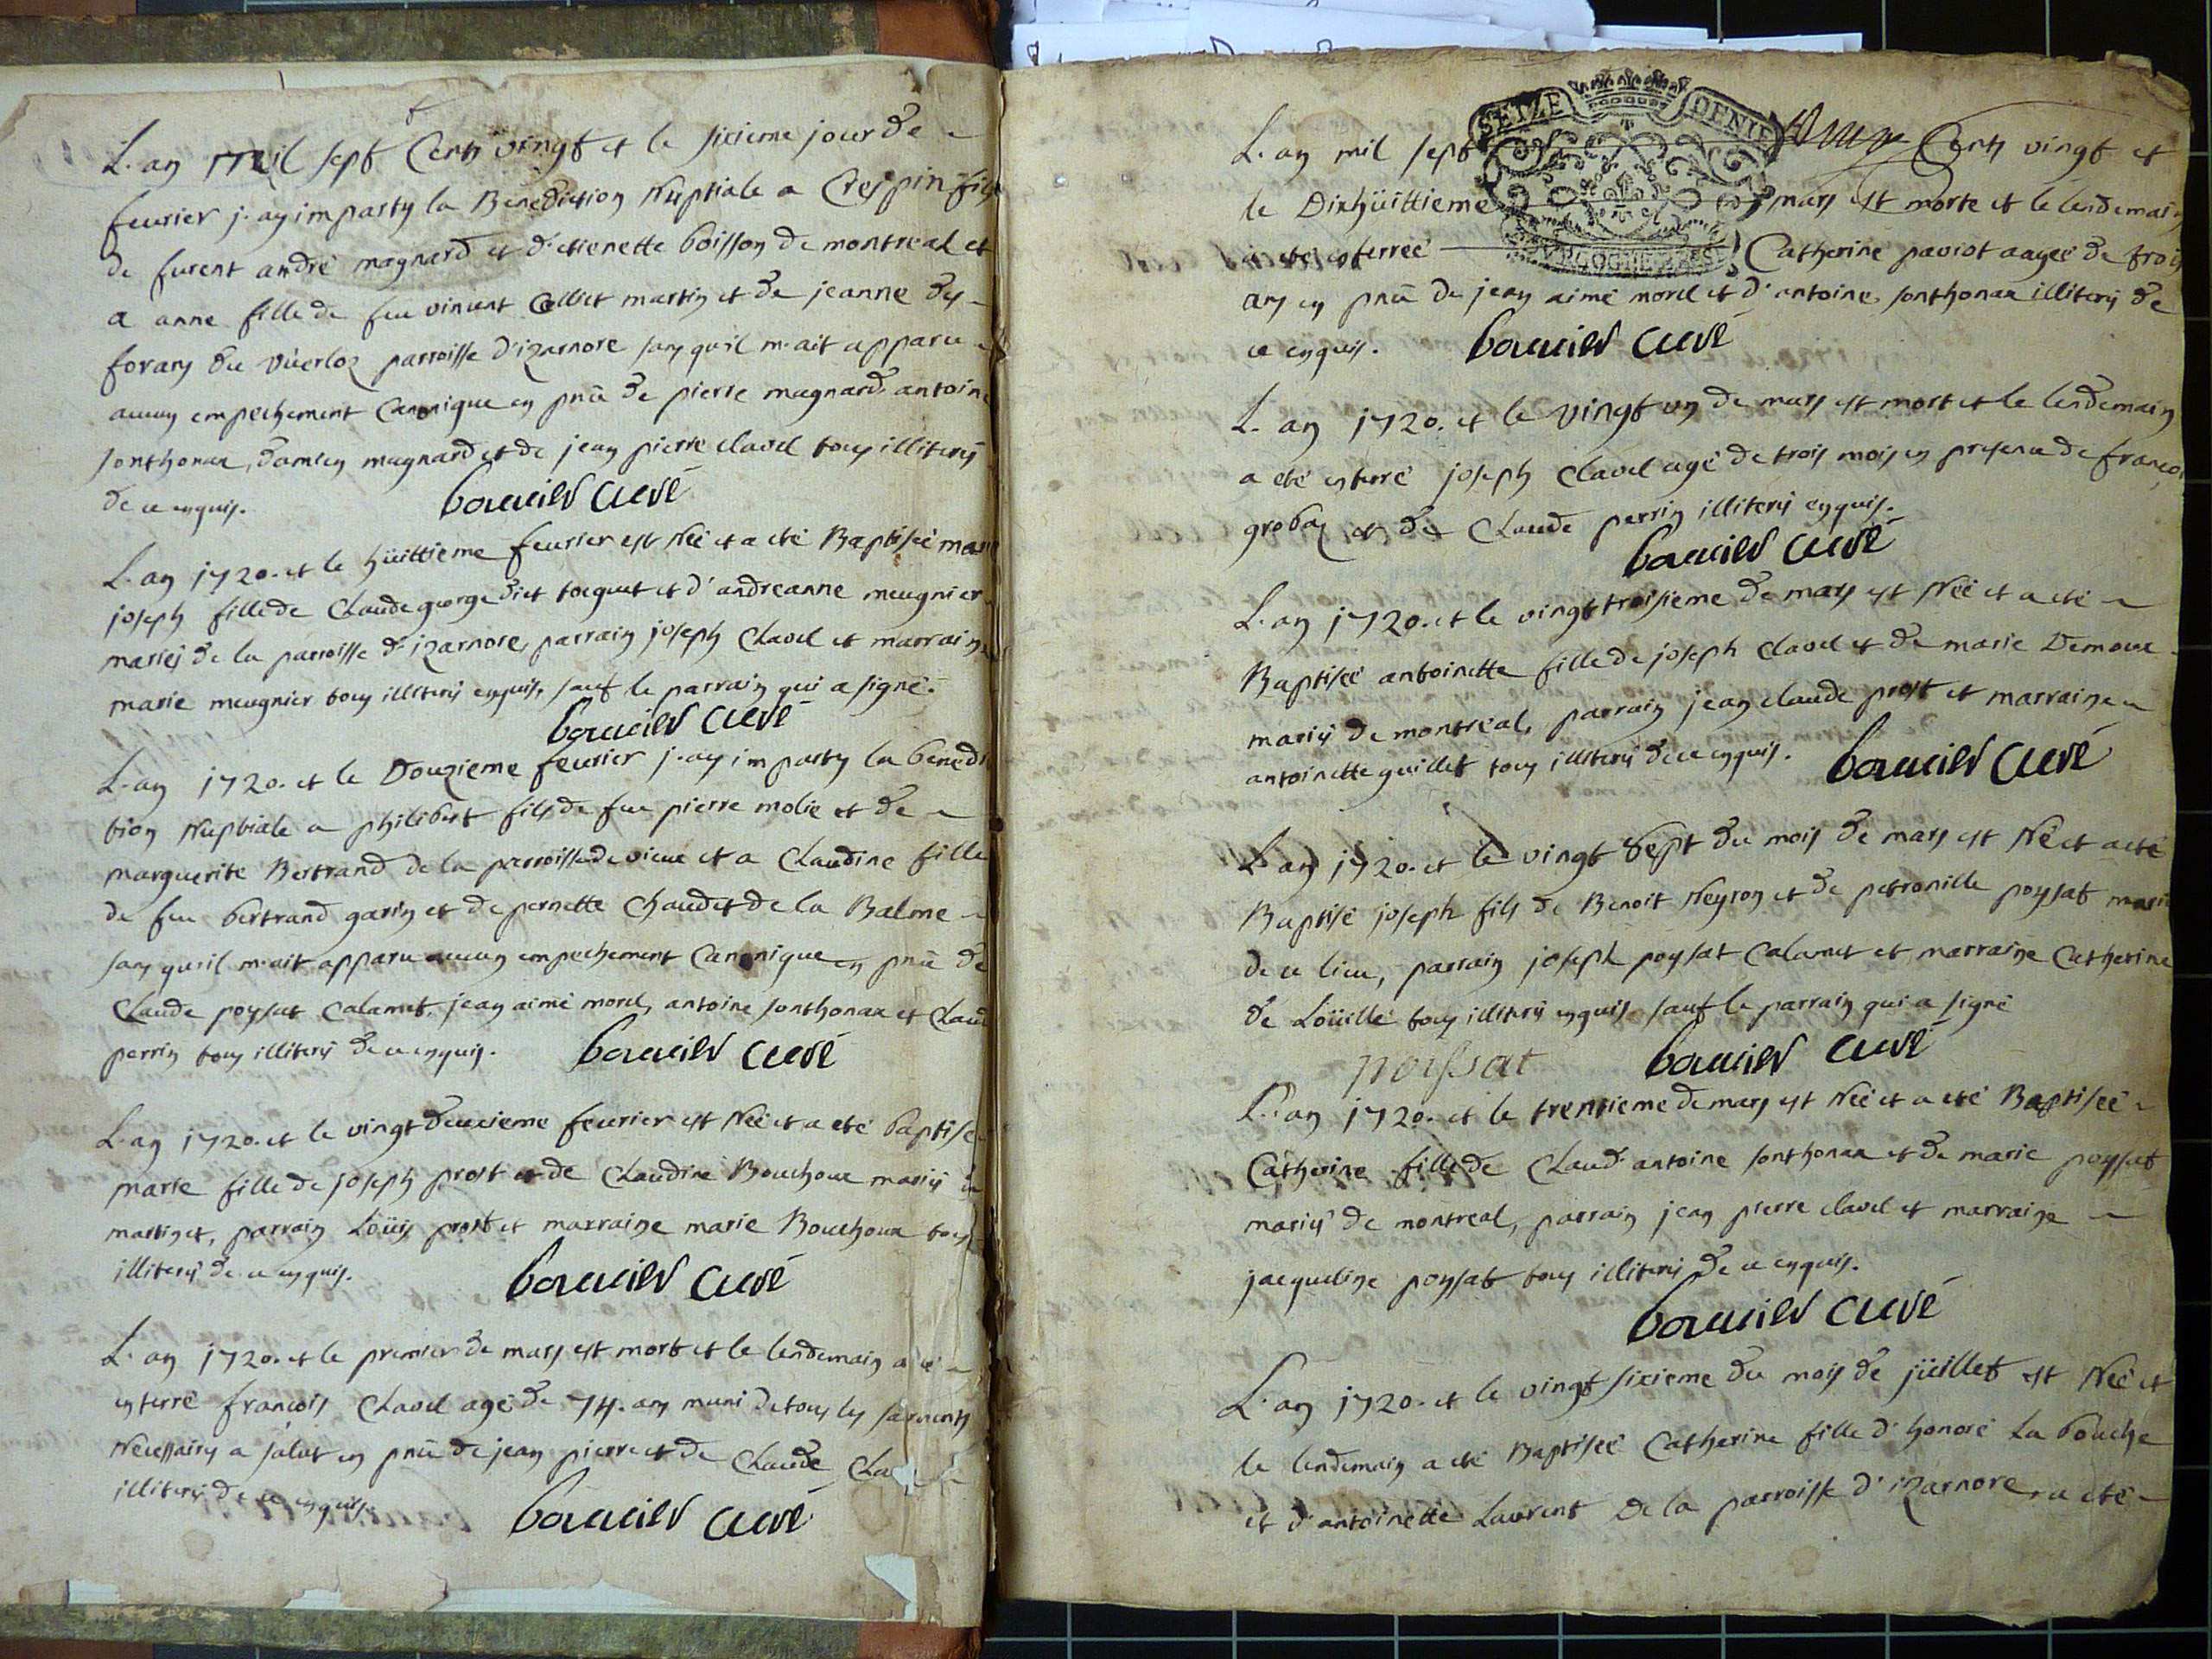 L'an mil sept Cents vingt et le sixieme jour de
feurier j'ay imparty la Benediction Nuptiale a Crespin fils
de furent andré magnard et d'etienette boisson de montreal et
a anne fille de feu vincent Colliet martin et de jeanne des
forans du Vuerloz parroisse d'izarnore sans qu'il m'ait apparu
aucun empechement Canonique en pnce de pierre magnard, antoine
sonthonax, damien magnard et de jean pierre clavel tous illiterés
de ce enquis. boccuier curé
L'an 1720. et le hüittieme feurier est Née et a eté Baptisée marie
joseph fille de Claude george dit tocquet et d'andreanne meugnier
mariés de la parroisse d'izarnore, parrain joseph Clavel et marraine
marie meugnier tous illiterés enquis, sauf le parrain qui a signé.
boccuier curé
L'an 1720. et le Douzieme feurier j'ay imparty la benedi
tion Nuptiale a philibert fils de feu pierre molie et de
marguerite Bertrand de la parroisse de vieux et a Claudine fille
de feu bertrand garin et de pernette Chaudet de la Balme
sans qu'il m'ait apparu aucun empechement Canonique en pnce de
Claude poysat Calamet, jean aimé morel, antoine sonthonax et Claude
perrin tous illiterés de ce enquis. boccuier curé
L'an 1720. et le vingt deuxieme feurier est Née et a eté baptisée
marie fille de joseph prost et de Claudine Bouchoux mariés
martinet, parrain Loüis prost et marraine marie Bouchoux tous
illiterés de ce enquis. boccuier curé
L'an 1720. et le premier de mars est mort et le lendemain a eté
enterré francois Clavel agé de 74. ans muni de tous les sacrements
Necessaires a salut en pnce de jean pierre et de Claude Cla
illiterés de ce enquis. boccuier curé
SEIZE DENIE
L'an mil sept Cents vingt et
le Dixhüittieme mars est morte et le lendemain
a eté enterreé Catherine paviot aageé de trois
ans en pnce de jean aimé morel et d'antoine sonthonax illiterés de
ce enquis. boccuier curé
L'an 1720. et le vingt un de mars est mort et le lendemain
a eté enterré joseph Clavel agé de trois mois en presence de francois
grobas et de Claude perrin illiterés enquis.
boccuier curé
L'an 1720. et le vingt troisieme de mars est Née et a eté
Baptisée antoinette fille de joseph clavel et de marie Demoux
mariés de montreal, parrain jean claude prost et marraine
antoinette guillet tous illiterés de ce enquis. boccuier curé
L'an 1720. et le vingt Sept du mois de mars est Né et a eté
Baptisé joseph fils de Benoit Neyron et de petronille poysat mariés
de ce lieu, parrain joseph poysat Calamet et marraine Catherine
de Loüille tous illiterés enquis sauf le parrain qui a signé
poissat boccuier curé
L'an 1720. et le trentieme de mars est Née et a eté Baptisée
Catherine fille de Claud'antoine sonthonax et de marie poysat
mariés de montreal, parrain jean pierre clavel et marraine
jacqueline poysat tous illiterés de ce enquis.
boccuier curé
L'an 1720. et le vingt sixieme du mois de jüillet est Née et
le lendemain a eté Baptisée Catherine fille d'honoré La bouche
et d'antoinette Laurent De la parroisse d'izarnore, a eté